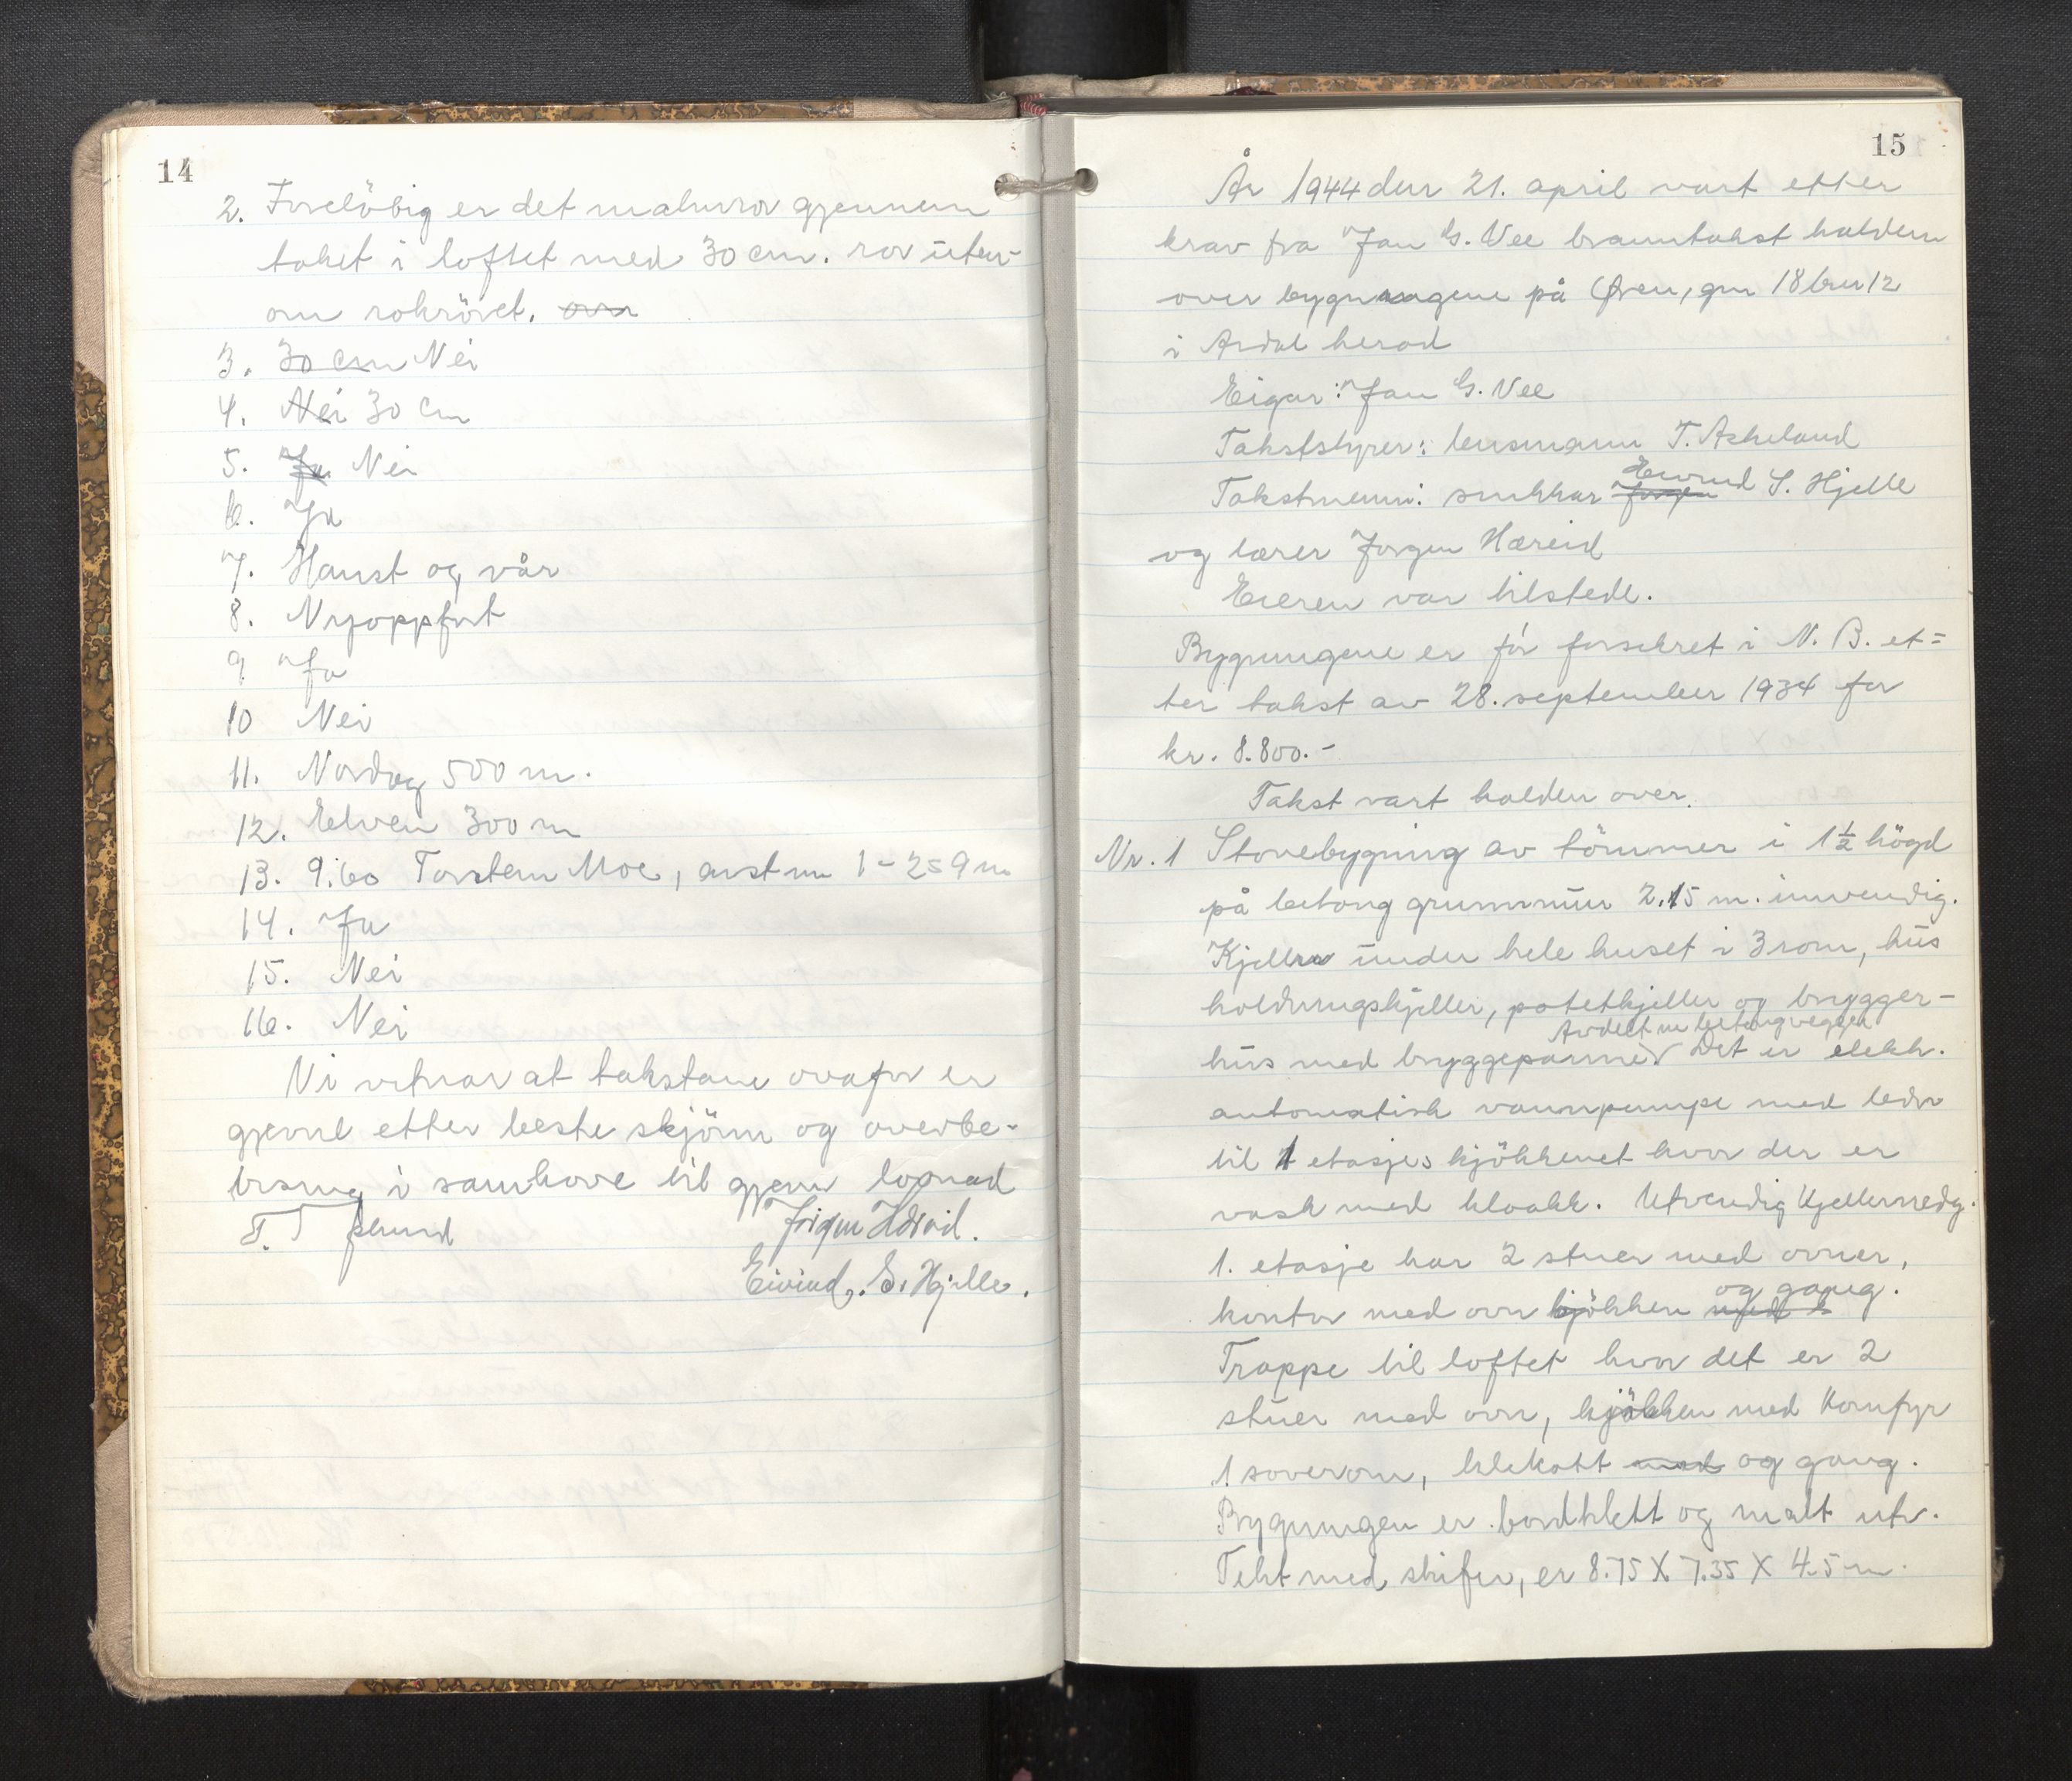 14
2. Foreløbig er det malurror gjennem
taket i loftet med 30 cm. ror uten-
om rokröret. over
3. 30 cm Nei
4. Nei 30 cm
5. Ja Nei
6. Ja
7. Haust og vår
8. Nyoppfört
9 Ja
10 Nei
11. Nordog 500 m.
12. Elven 300 m
13. 9.60 Torstein Moe, anst nu 1-259 m
14. Ja
15. Nei
16. Nei
Vi vitnar at takstane ovafor er
gjevne etter beste skjönn og overbe-
visning i samhove til gjenn lovnad
Jörgen Hæreid.
Eivind. S. Hjelle.
15
År 1944 den 21. april vart etter
krav fra Jan G. Vee branntakst halden
over bygningene på Øren, gnr 18 bnr 12
i Årdal herad
Eigar: Jan G. Vee
Takststyrer: lensmann T. Askeland
Takstmenn: snekkar Jørgen Eivind S. Hjelle
og lærer Jorgen Hæreid
Eieren var tilstede.
Bygningene er för forsikret i N. B. et=
ter takst av 28. september 1934 for
kr. 8.800.-
Takst vart halden over.
Nr. 1 Stovebygning av tömmer i 1½ högd
på betong grunnmur 2.15 m. innvendig.
Kjeller under hele huset i 3 rom, hus
holdningskjeller, potetkjeller og brygger-
Avdelt m betongvegger
hus med bryggepanne Det er elektr.
automatisk vannpumpe med ledn
til 1 etasjes kjökkenet hvor der er
vask med kloakk. Utvendig Kjellernedg.
1. etasje har 2 stuer med ovner,
kontor med ovn kjökken med k og gang.
Trappe til loftet hvor det er 2
stuer med ovn, kjökken med Komfyr
1 soverom, klekott med og gang.
Bygningen er bordklett og malt utv.
Tekt med skifer, er 8.75 X 7.35 X 4.5 m.